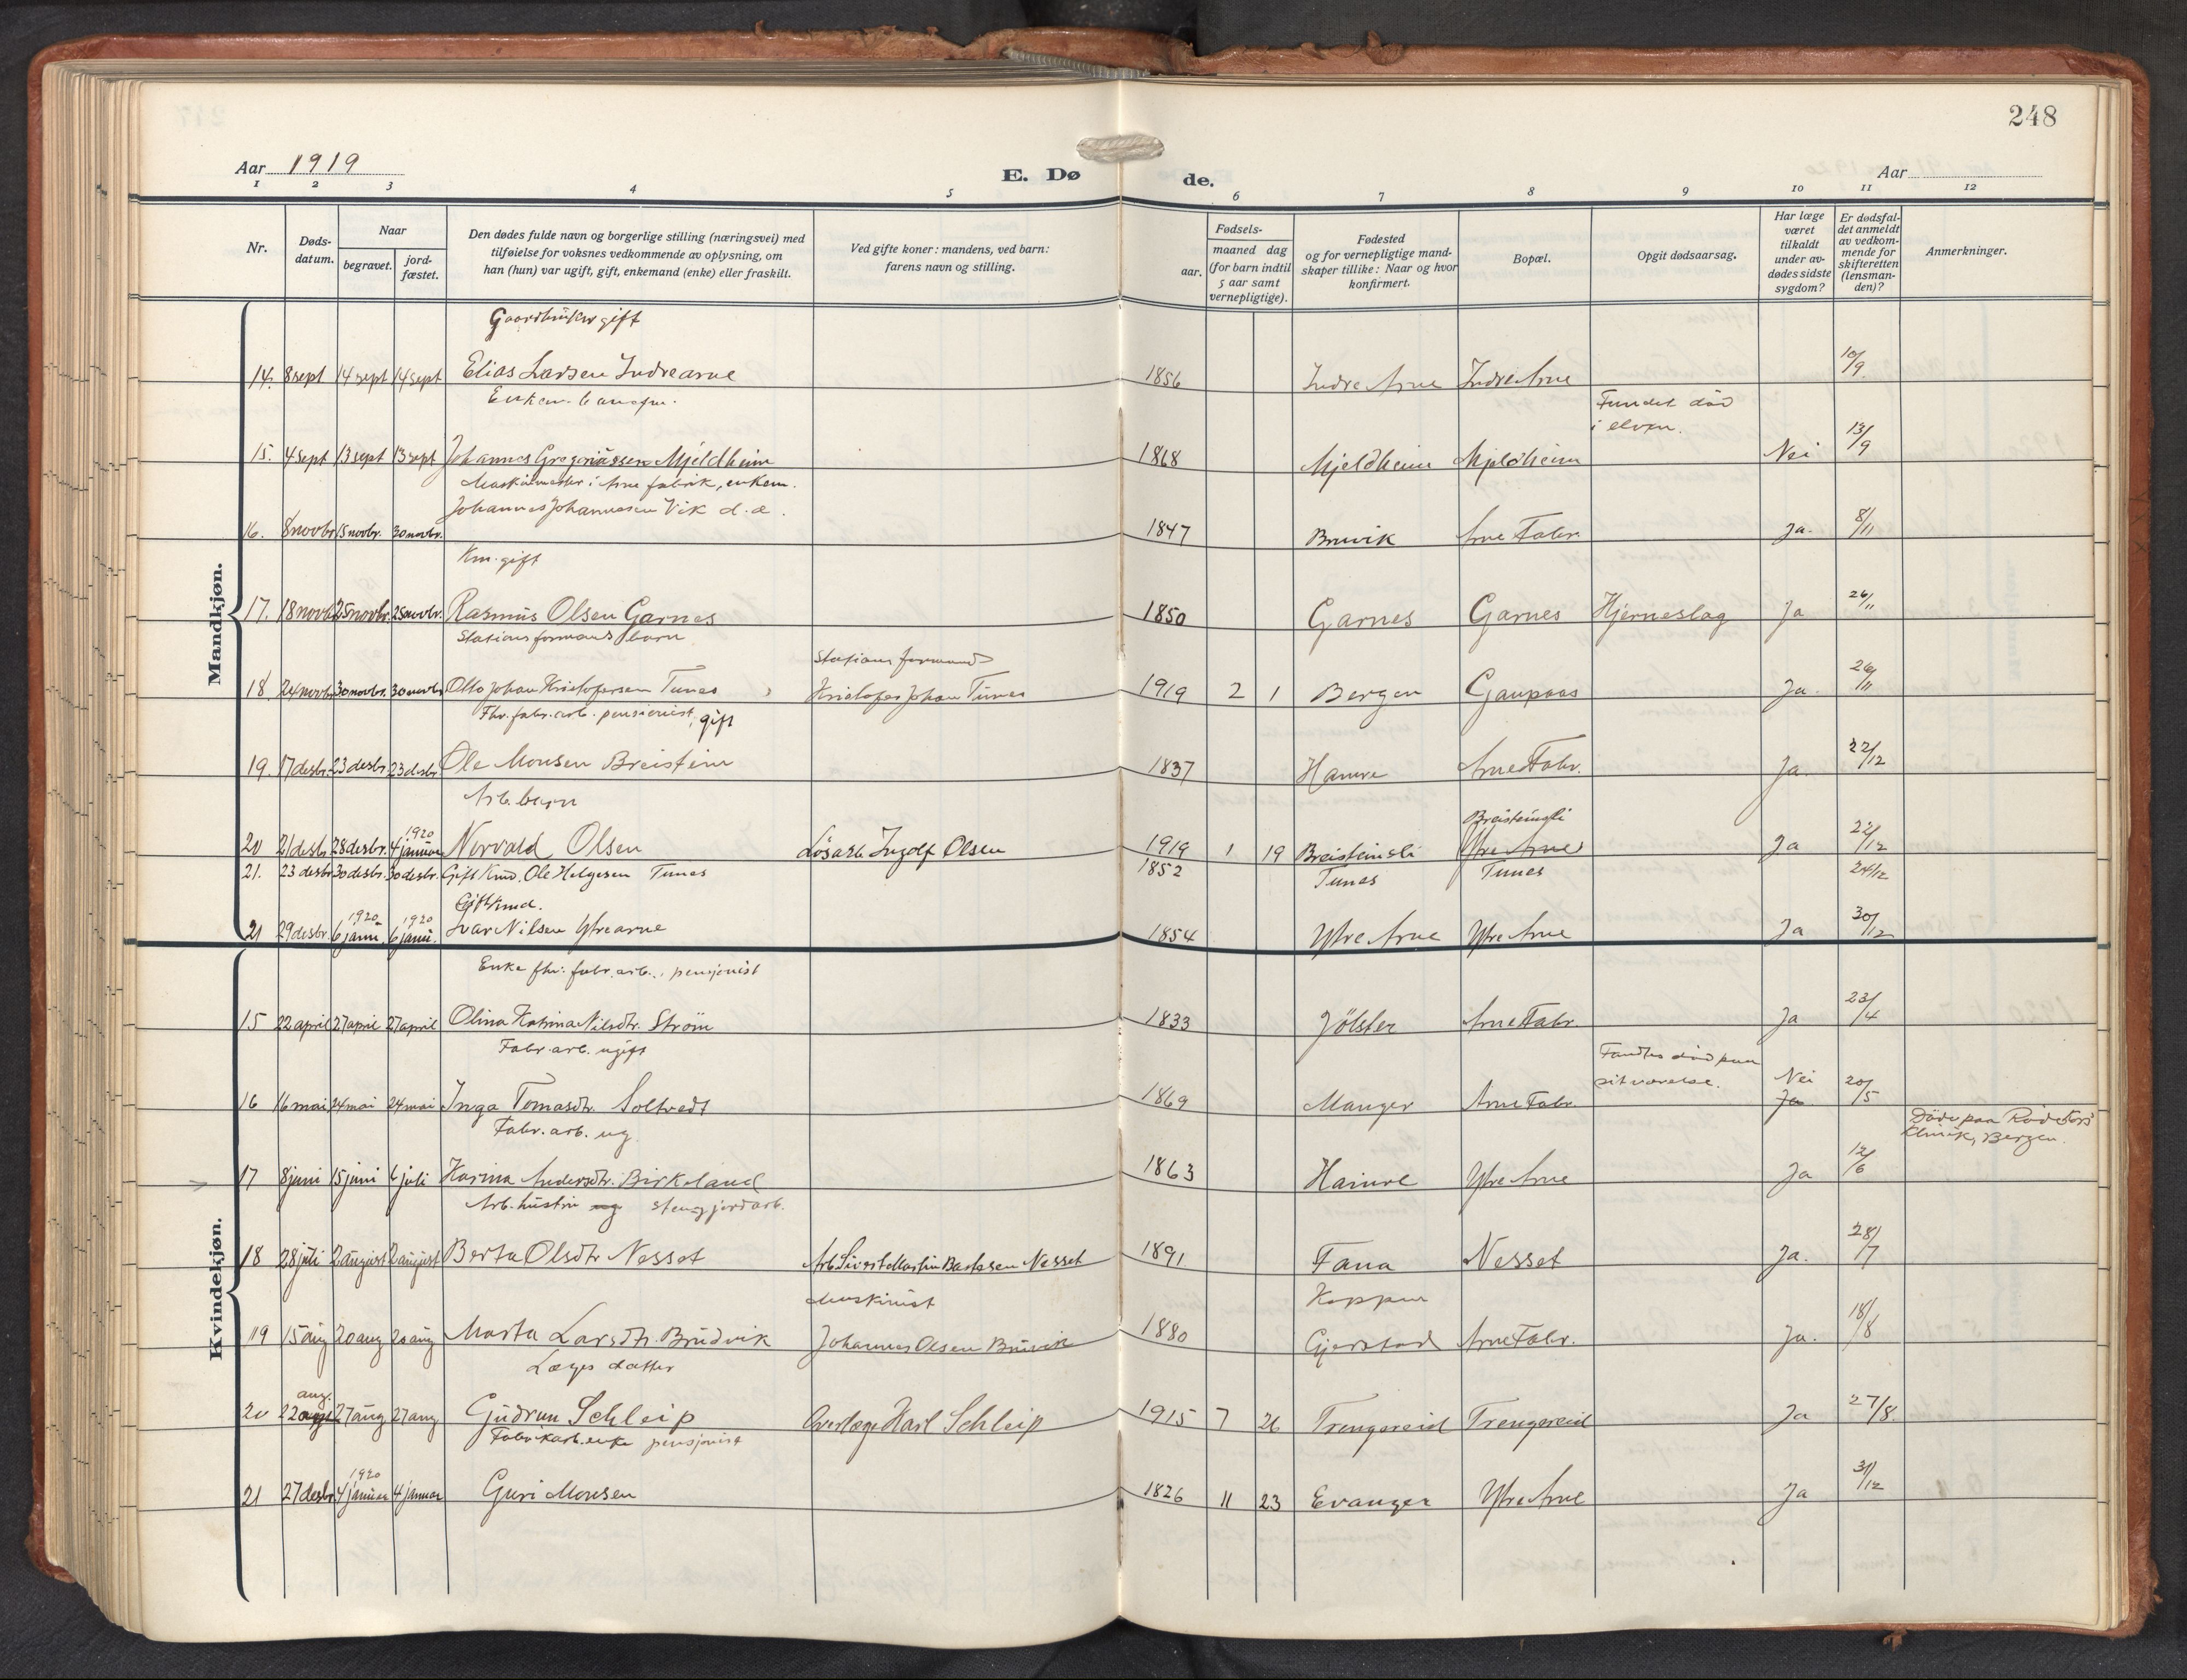 248
Aar 1919
E. Dø
de.
Aar
1 2 3 4 5 6 7 8 9 10 11 12
Nr.
Døds-
datum.
Naar
begravet.
jord-
fæstet.
Den dødes fulde navn og borgerlige stilling (næringsvei) med
tilføielse for voksnes vedkommende av oplysning, om
han (hun) var ugift, gift, enkemand (enke) eller fraskilt.
Ved gifte koner: mandens, ved barn:
farens navn og stilling.
Fødsels-
aar.
maaned dag
(for barn indtil
5 aar samt
vernepligtige).
Fødested
og for vernepligtige mand-
skaper tillike: Naar og hvor
konfirmert.
Bopæl.
Opgit dødsaarsag.
Har læge
været
tilkaldt
under av-
dødes sidste
sygdom?
Er dødsfal-
det anmeldt
av vedkom-
mende for
skifteretten
(lensman-
den)?
Anmerkninger.
Mandkjøn.
Gaardbruker gift
14. 8 sept 14 sept 14 sept Elias Larsen Indrearne 1856 Indre Arne Indre Arne 10/9
Fundet død
i elven.
15. 4 sept 13 sept 13 sept Johannes Gregoriussen Mjeldheim 1868 Mjeldheim Mjeldheim Nei 13/9
Maskinmester i Arne fabrik, enkem.
Johannes Johannessen Vik d. æ.
16. 8 novbr 15 novbr. 30 novbr. 1847 Bruvik Arne Fabr. Ja. 8/11
Km. gift
17. 18 novb 25 novbr. 25 novbr. Rasmus Olsen Garnes 1850 Garnes Garnes Hjerneslag Ja 26/11
Stationsformands barn
Stationsformand
18. 24 novb 30 novbr. 30 novbr Otto Johan Kristofersen Tunes Kristofer Johan Tunes 1919 2 1 Bergen Gaupaas Ja 26/11
Fhv. fabr. arb. pensionist, gift
19. 17 desbr. 23 desbr 23 desbr Ole Monsen Breistein 1837 Hamre Arne Fabr. Ja. 22/12
Arb. barn
1920
Breisteinsli
20 21 desbr 28 desbr. 4 januar Norvald Olsen Løsarb Ingolf Olsen 1919 1 19 Breisteinsli Ytre Arne Ja 22/12
21. 23 desbr 30 desbr. 30 desbr. Gift Kmd. Ole Helgesen Tunes 1852 Tunes Tunes 24/12
Gift kmd.
1920 1920
21 29 desbr 6 janu. 6 janu. Ivar Nilsen Ytrearne 1854 Ytre Arne Ytre Arne Ja 30/12
Kvindekjøn.
Enke fhv. fabr. arb., pensjonist
15 22 april 27 april 27 april Olina Katrina Nilsdtr. Strøm 1833 Jölster Arne Fabr. Ja 23/4
Fabr. arb. ugift
Fandtes død paa
sit værelse.
Nei
16 16 mai 24 mai 24 mai Inga Tomasdtr. Soltvedt 1869 Manger Arne Fabr. Ja 20/5
Fabr. arb. ug
Döde paa Röde Kors'
Klinik, Bergen.
17 8 juni 15 juni 6 juli Karina Andersdtr. Birkeland 1863 Hamre Ytre Arne Ja 12/6
Arb. hustru ug sten og jordarb.
18 28 juli 2 august 2 august Berta Olsdtr Nesset Arb Sivert Martin Bastesen Nesset 1891 Fana Nesset Ja. 28/7
Maskinist
19 15 aug 20 aug 20 aug Marta Larsdtr. Brudvik Johannes Olsen Bruvik 1880 Gjerstad Arne Fabr. Ja. 18/8
Læges datter
aug.
20 22 27 aug 27 aug Gudrun Schleip Overlæge Karl Schleip 1915 7 26 Trengereid Trengereid Ja 27/8.
Fabrikarb. enke pensjonist
1920
21 27 desbr 4 januar 4 januar Guri Monsen 1826 11 23 Evanger Ytre Arne Ja 31/12